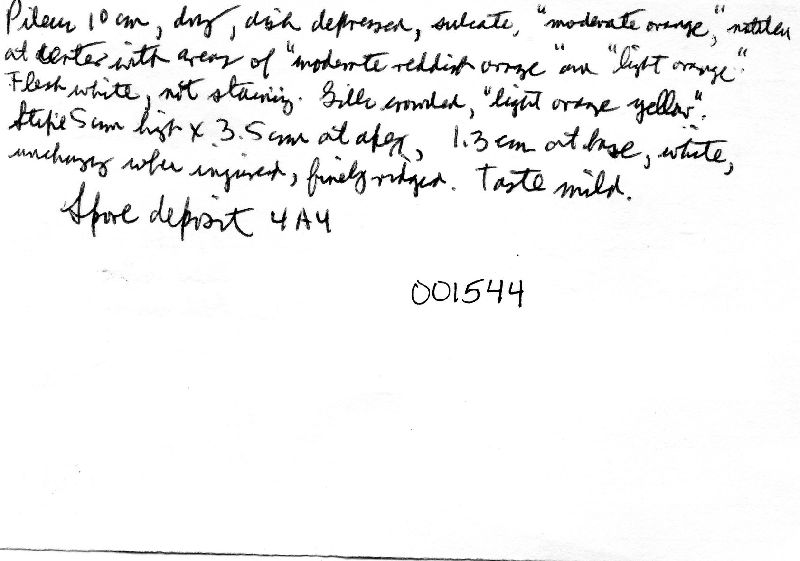 Pileus 10 cm, dry, disk depressed, sulcate, "moderate orange", mottled
at center with areas of "moderate reddish orange" and "light orange".
Flesh white, not staining. Gills crowded, "light orange yellow".
Stipe 5 cm high x 3.5 cm at apex, 1.3 cm at base, white,
unchanging when injured, finely ridged. Taste mild.
Spore deposit 4A4
001544